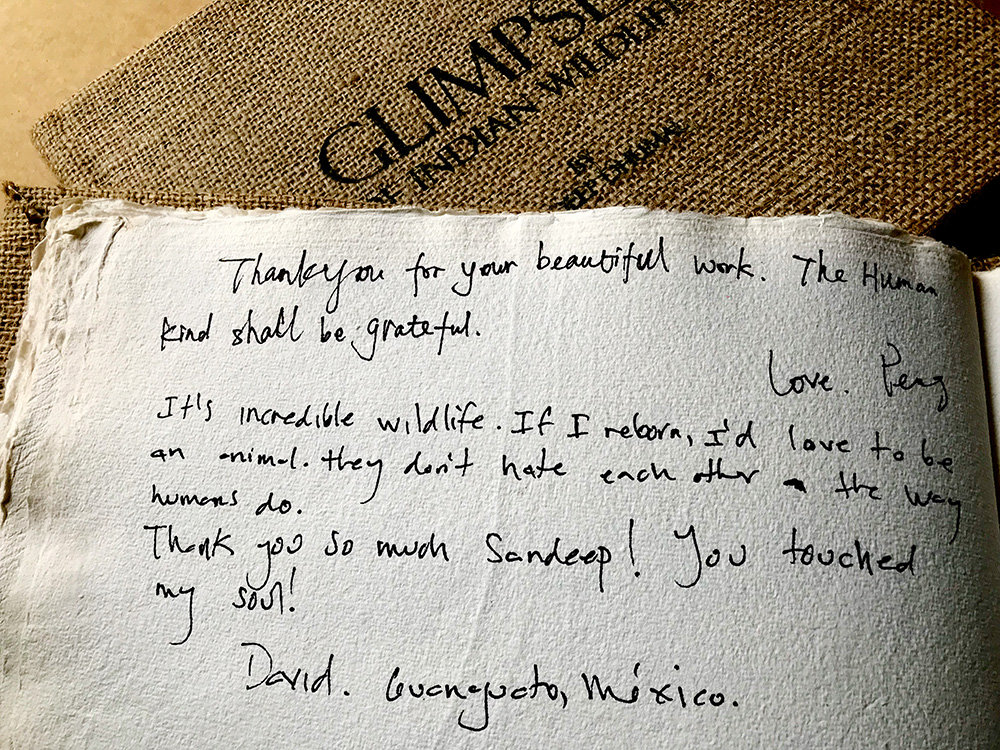 GLIMPSE
INDIAN WILDLIF
BY
Thankyou for your beautiful work. The Human
kind shall be grateful.
Love. Peng
It's incredible wildlife. If I reborn, I'd love to be
an animal. they don't hate each other the way
humans do.
Thank you so much Sandeep! You touched
my soul!
David. Guanaguato, México.